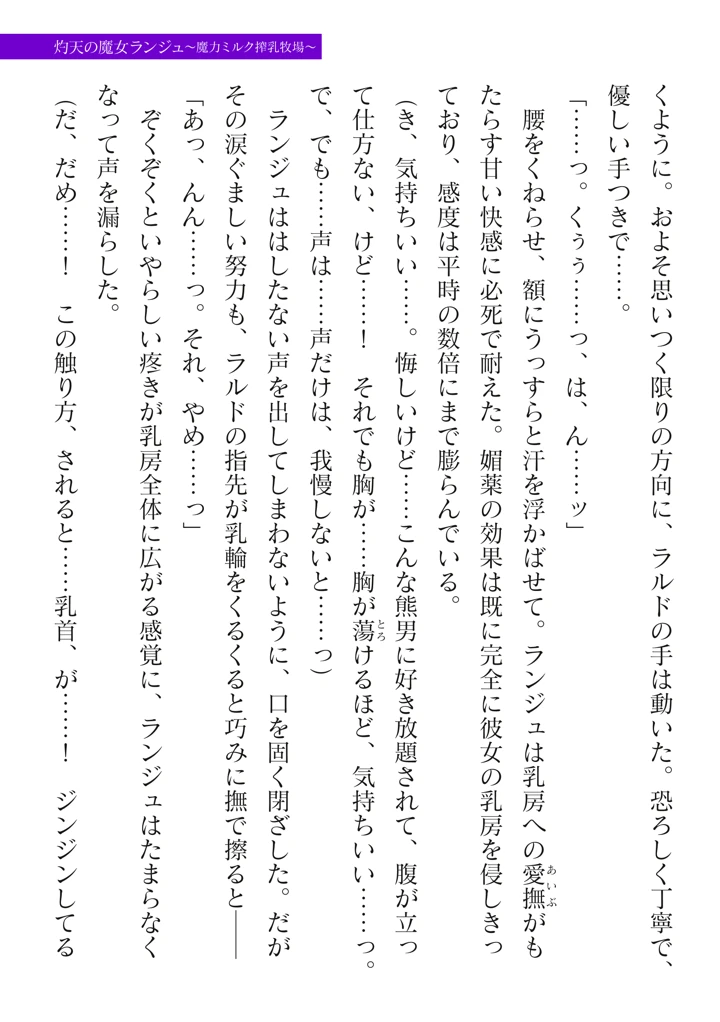 灼天の魔女ランジュ～魔力ミルク搾乳牧場～
くように。およそ思いつく限りの方向に、ラルドの手は動いた。恐ろしく丁寧で、
優しい手つきで……。
「……っ。くぅぅ……っ、は、ん……ッ」
腰をくねらせ、額にうっすらと汗を浮かばせて。ランジュは乳房への愛撫がも
たらす甘い快感に必死で耐えた。媚薬の効果は既に完全に彼女の乳房を侵しきっ
ており、感度は平時の数倍にまで膨らんでいる。
（き、気持ちいい……。悔しいけど……こんな熊男に好き放題されて、腹が立っ
て仕方ない、けど……！　それでも胸が……胸が蕩けるほど、気持ちいい……っ。
で、でも……声は……声だけは、我慢しないと……っ）
ランジュははしたない声を出してしまわないように、口を固く閉ざした。だが
その涙ぐましい努力も、ラルドの指先が乳輪をくるくると巧みに撫で擦ると――
「あっ、んん……っ。それ、やめ……っ」
ぞくぞくといやらしい疼きが乳房全体に広がる感覚に、ランジュはたまらなく
なって声を漏らした。
（だ、だめ……！　この触り方、されると……乳首、が……！　ジンジンしてる